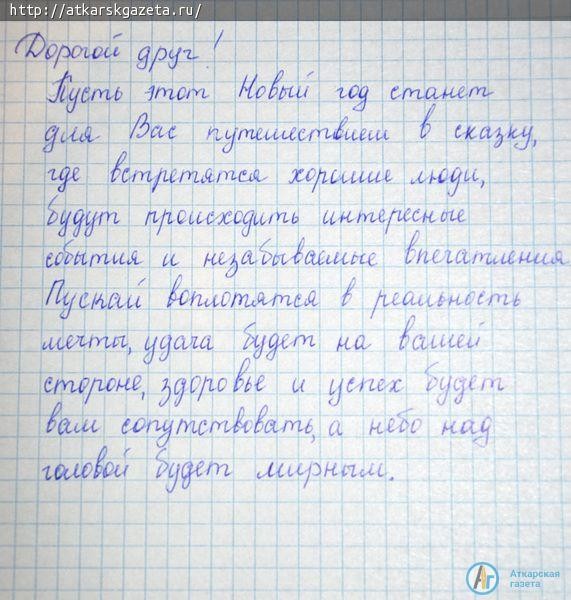 http://atkarskgazeta.ru/
Дорогой друг!
Пусть этот Новый год станет
для Вас путешествием в сказку,
где встретятся хорошие люди,
будут происходить интересные
события и незабываемые впечатления
Пускай воплотятся в реальность
мечты, удача будет на вашей
стороне, здоровье и успех будет
вам сопутствовать, а небо над
головой будет мирным.
Аг
Аткарская
газета